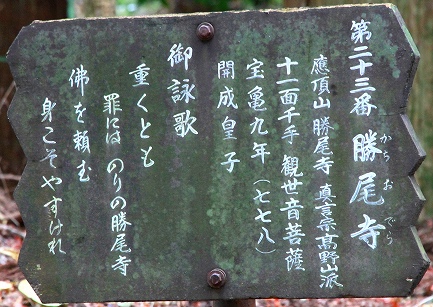 第二十三番 勝尾寺
かちおでら
應頂山 勝尾寺 真言宗高野山派
十一面千手 観世音菩薩
宝亀九年(七七八)
開成皇子
御詠歌
重くとも
罪には のりの勝尾寺
佛を頼む
身こそやすけれ